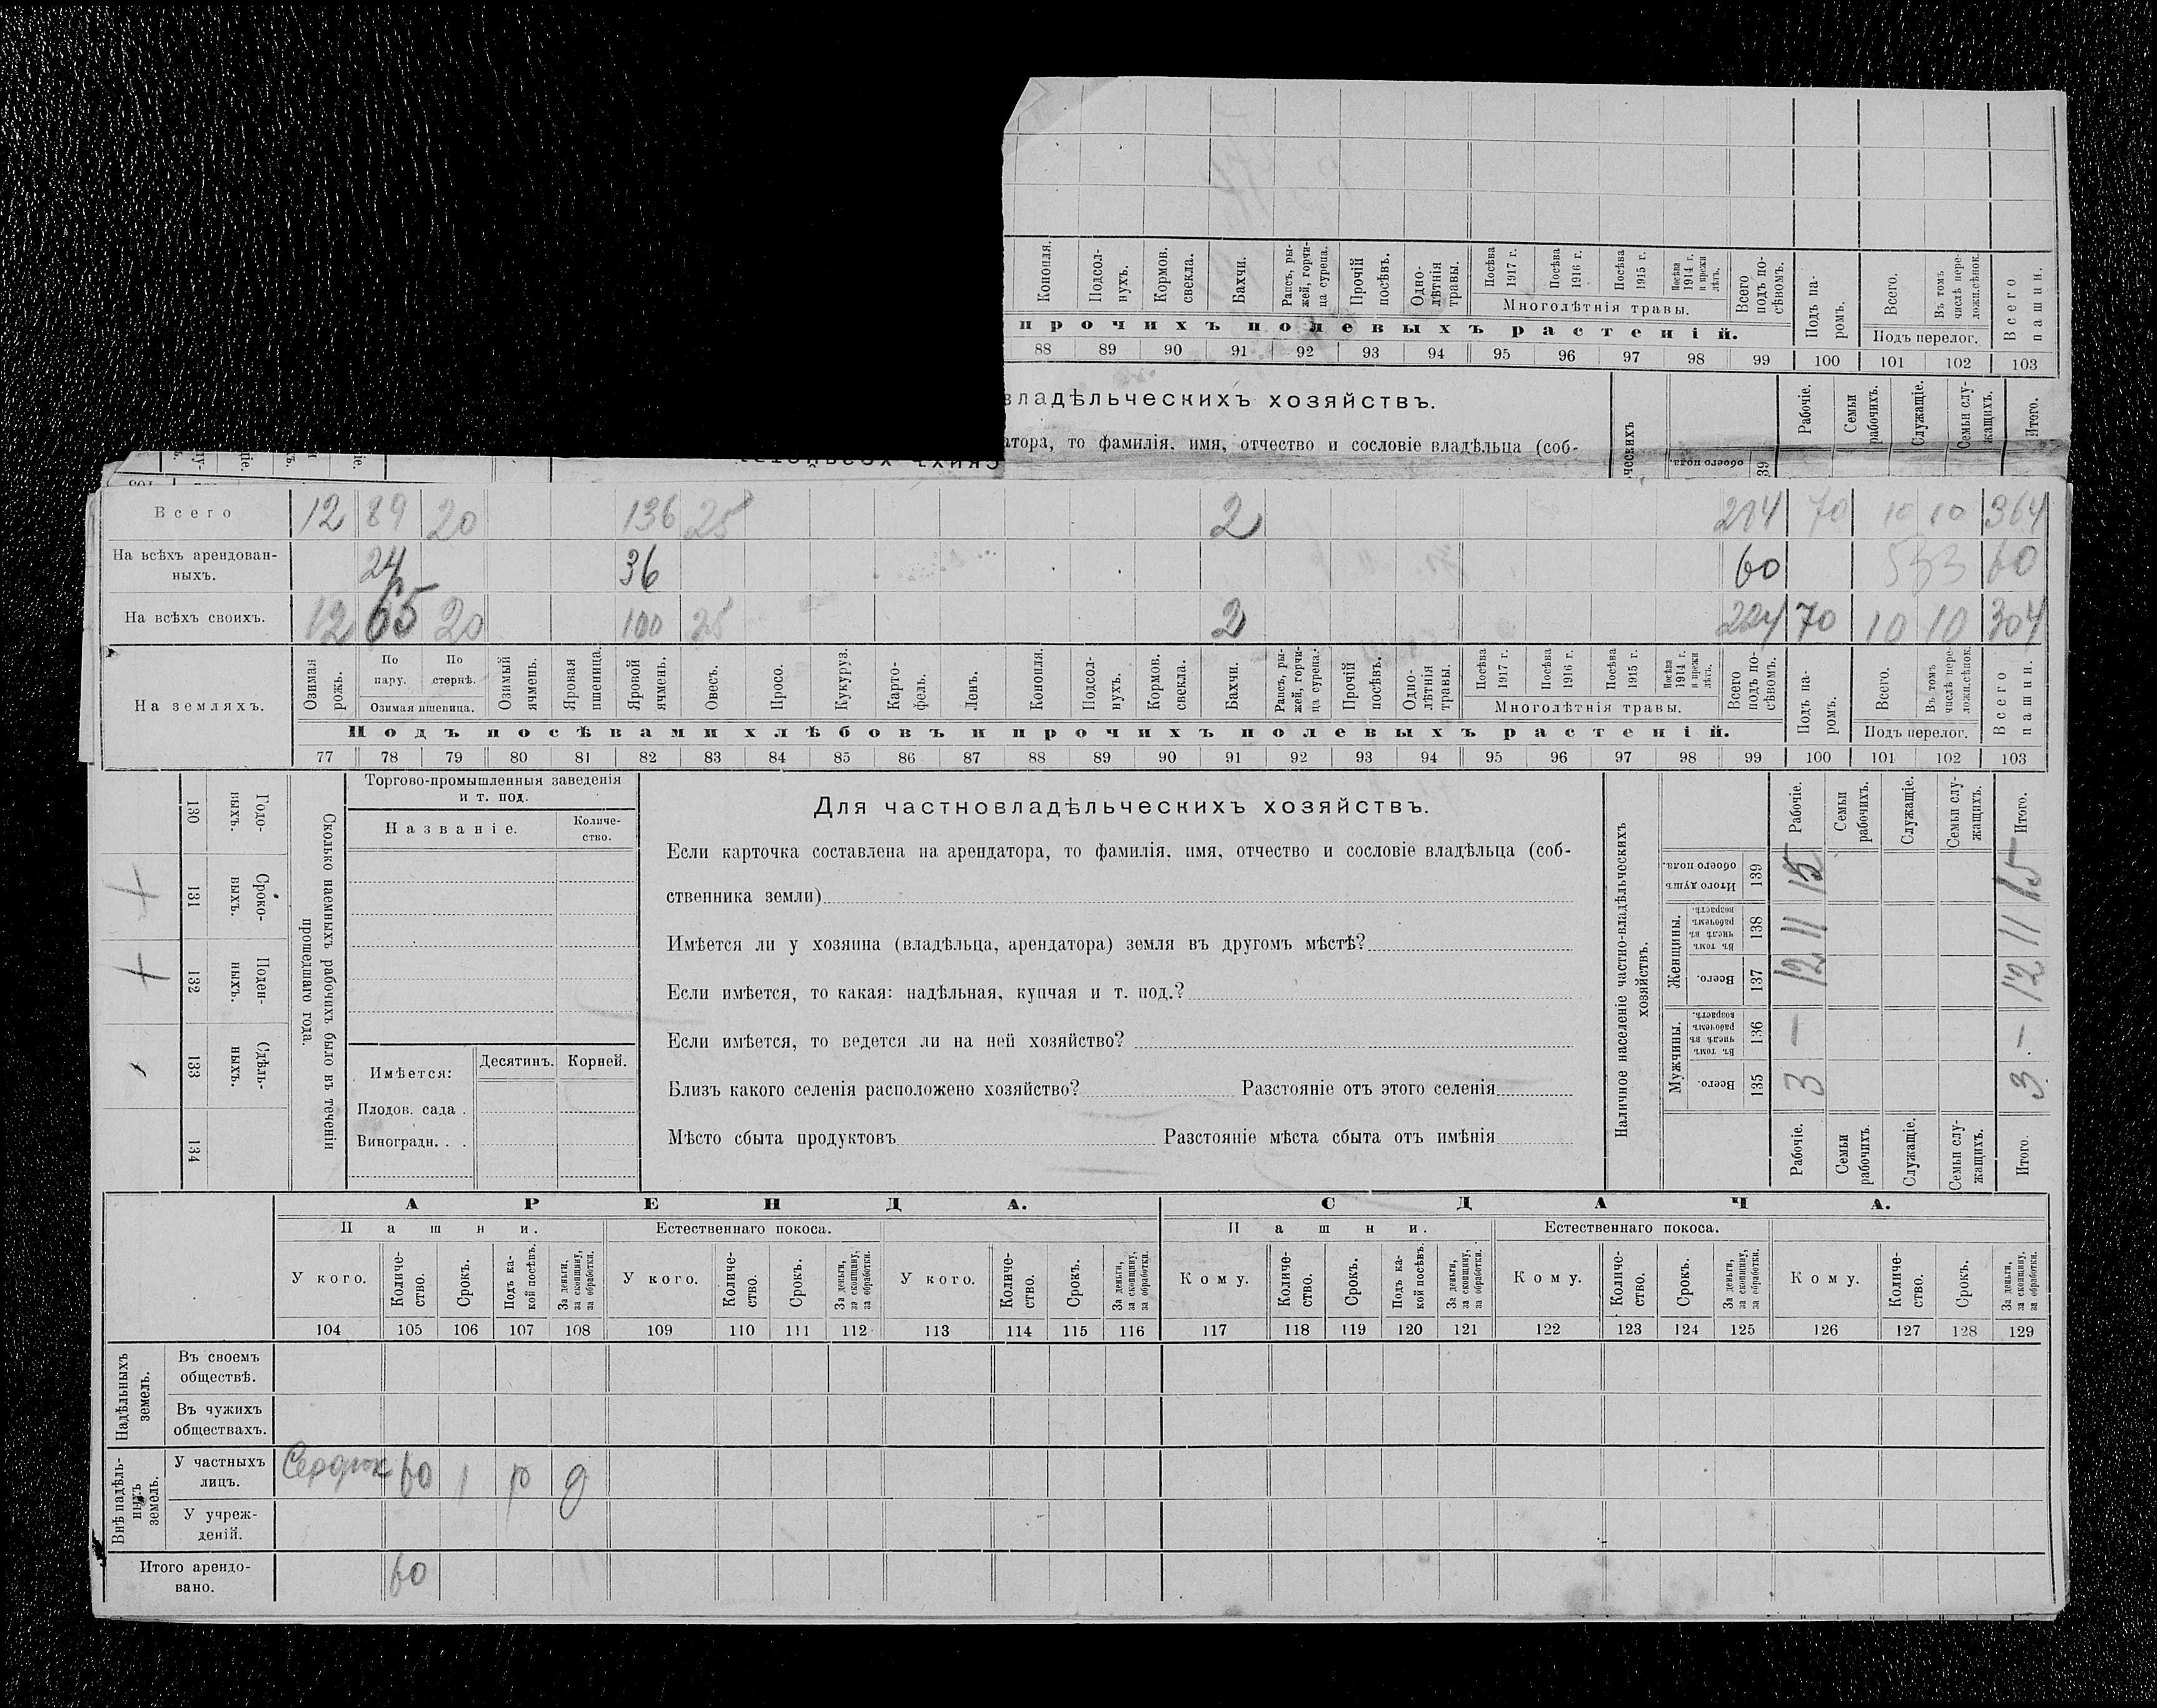 Конопля. Подсол-нухъ. Кормов. свекла. Бахчи. Рапсъ, ры-жей, горчи-ца сурепа. Прочій посѣвъ. Одно-лѣтнія травы. Посѣва 1917 г. Посѣва 1916 г. Посѣва 1915 г. Посѣва 1914 г. и прежн лѣтъ. Всего подъ по-сѣвомъ. Подъ па-ромъ. Всего. Въ томъ числѣ пере-ложн.сѣнок. Всего пашни.
Многолѣтнія травы.
прочихъ полевыхъ растеній. Подъ перелог.
88 89 90 91 92 93 94 95 96 97 98 99 100 101 102 103
владѣльческихъ хозяйствъ.
Рабочіе. Семьи рабочихъ. Служащіе. Семьи слу-жащихъ. Итого.
атора, то фамилія, имя, отчество и сословіе владѣльца (соб-
Всего 12 89 20 136 25 2 70 10 10 364
На всѣхъ арендован-ныхъ. 24 36 60 60
На всѣхъ своихъ. 12 65 20 100 25 2 224 70 10 10 304
На земляхъ. Озимая рожь. По пару. По стернѣ. Озимый ячмень. Яровая пшеница. Яровой ячмень. Овесъ. Просо. Кукуруз. Карто-фель. Ленъ. Конопля. Подсол-нухъ. Кормов. свекла. Бахчи. Рапсъ, ры-жей, горчи-ца сурепа. Прочій посѣвъ. Одно-лѣтнія травы. Посѣва 1917 г. Посѣва 1916 г. Посѣва 1915 г. Посѣва 1914 г. и прежн лѣтъ. Всего подъ по-сѣвомъ. Подъ па-ромъ. Всего. Въ томъ числѣ пере-ложн.сѣнок. Всего пашни.
Озимая пшеница. Многолѣтнія травы.
Подъ посѣвами хлѣбовъ и прочихъ полевыхъ растеній. Подъ перелог.
77 78 79 80 81 82 83 84 85 86 87 88 89 90 91 92 93 94 95 96 97 98 99 100 101 102 103
Сколько наемныхъ рабочихъ было въ теченіи
прошедшаго года.
Годо-выхъ. 130
Сроко-выхъ. 131 +
Поден-ныхъ. 132 +
Сдѣль-ныхъ. 133
134
Торгово-промышленныя заведенія
и т. под.
Названіе. Количе-ство.
Имѣется: Десятинъ. Корней.
Плодов. сада .
Виноградн. . .
Для частновладѣльческихъ хозяйствъ.
Если карточка составлена на арендатора, то фамилія, имя, отчество и сословіе владѣльца (соб-
ственника земли)
Имѣется ли у хозяина (владѣльца, арендатора) земля въ другомъ мѣстѣ?
Если имѣется, то какая: надѣльная, купчая и т. под.?
Если имѣется, то ведется ли на ней хозяйство?
Близъ какого селенія расположено хозяйство? Разстояніе отъ этого селенія
Мѣсто сбыта продуктовъ Разстояніе мѣста сбыта отъ имѣнія
Наличное населеніе частно-владѣльческихъ
хозяйствъ.
Рабочіе. Семьи рабочихъ. Служащіе. Семьи слу-жащихъ. Итого.
Итого душъ обоего пола. 139 15 15
Женщины. Въ томъ числѣ въ рабочемъ возрастѣ. 138 11 11
Всего. 137 12 12
Мужчины. Въ томъ числѣ въ рабочемъ возрастѣ. 136 — —
Всего. 135 3 3
Рабочіе. Семьи рабочихъ. Служащіе. Семьи слу-жащихъ. Итого.
АРЕНДА. СДАЧА.
Пашни. Естественнаго покоса. Пашни. Естественнаго покоса.
У кого. Количе-ство. Срокъ. Подъ ка-кой посѣвъ. За деньги, за скопщину, за обработки. У кого. Количе-ство. Срокъ. За деньги, за скопщину, за обработки. У кого. Количе-ство. Срокъ. За деньги, за скопщину, за обработки. Кому. Количе-ство. Срокъ. Подъ ка-кой посѣвъ. За деньги, за скопщину, за обработки. Кому. Количе-ство. Срокъ. За деньги, за скопщину, за обработки. Кому. Количе-ство. Срокъ. За деньги, за скопщину, за обработки.
104 105 106 107 108 109 110 111 112 113 114 115 116 117 118 119 120 121 122 123 124 125 126 127 128 129
Надѣльныхъ земель.
Въ своемъ обществѣ.
Въ чужихъ обществахъ.
Внѣ надѣль-ныхъ земель.
У частныхъ лицъ. Сердюк 60 1 р д
У учреж-деній.
Итого арендо-вано. 60